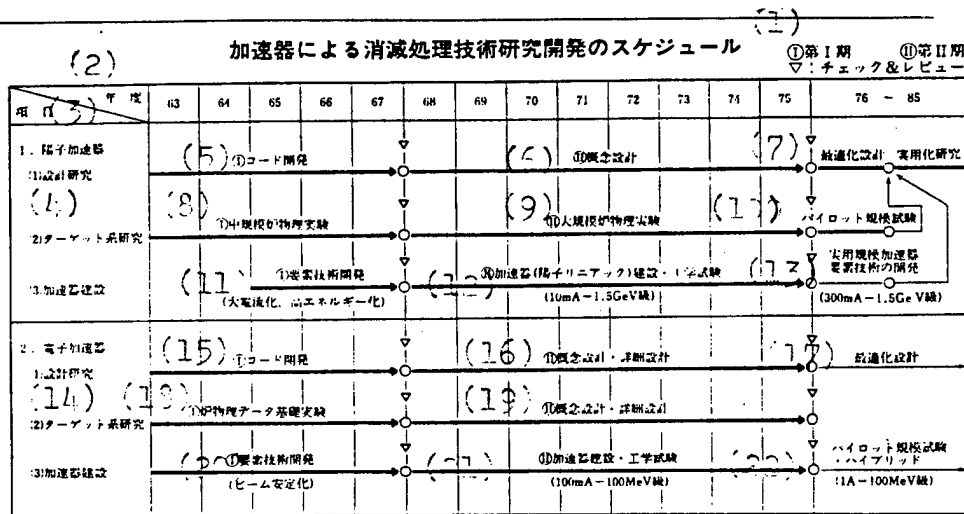 (1)
加速器による消滅処理技術研究開発のスケジュール
Ⓘ第Ⅰ期 Ⓘ第Ⅱ期
▽:チェック&レビュー
(2)
年度
項目 (3)
63 64 65 66 67 68 69 70 71 72 73 74 75 76 - 85
1.陽子加速器
(1)設計研究
(5) Ⓘコード開発
(6) Ⓘ概念設計
(7)
最適化設計 実用化研究
(4)
(2)ターゲット系研究
(8) Ⓘ中規模炉物理実験
(9) Ⓘ大規模炉物理実験
パイロット規模試験
(3)加速器建設
(11) Ⓘ要素技術開発
(大電流化、高エネルギー化)
加速器(陽子リニアック)建設・工学試験
(10mA-1.5GeV級)
実用規模加速器
要素技術の開発
(300mA-1.5GeV級)
2.電子加速器
(1)設計研究
(15) Ⓘコード開発
(16) Ⓘ概念設計・詳細設計
最適化設計
(14)
(2)ターゲット系研究
Ⓘ炉物理データ基礎実験
(19) Ⓘ概念設計・詳細設計
(3)加速器建設
Ⓘ要素技術開発
(ビーム安定化)
Ⓘ加速器建設・工学試験
(100mA-100MeV級)
パイロット規模試験
・ハイブリッド
(1A-100MeV級)